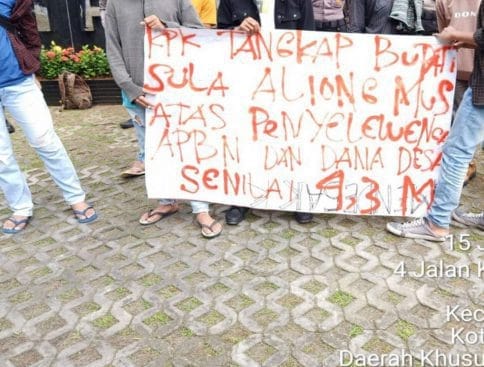 KPK TANGKAP BUPATI
SULA ALIONG MUS
ATAS PENYELEWENG
APBN DAN DANA DESA
SENILAI 4,3 M
15 J
4 Jalan K
Kec
Kot
Daerah Khusu